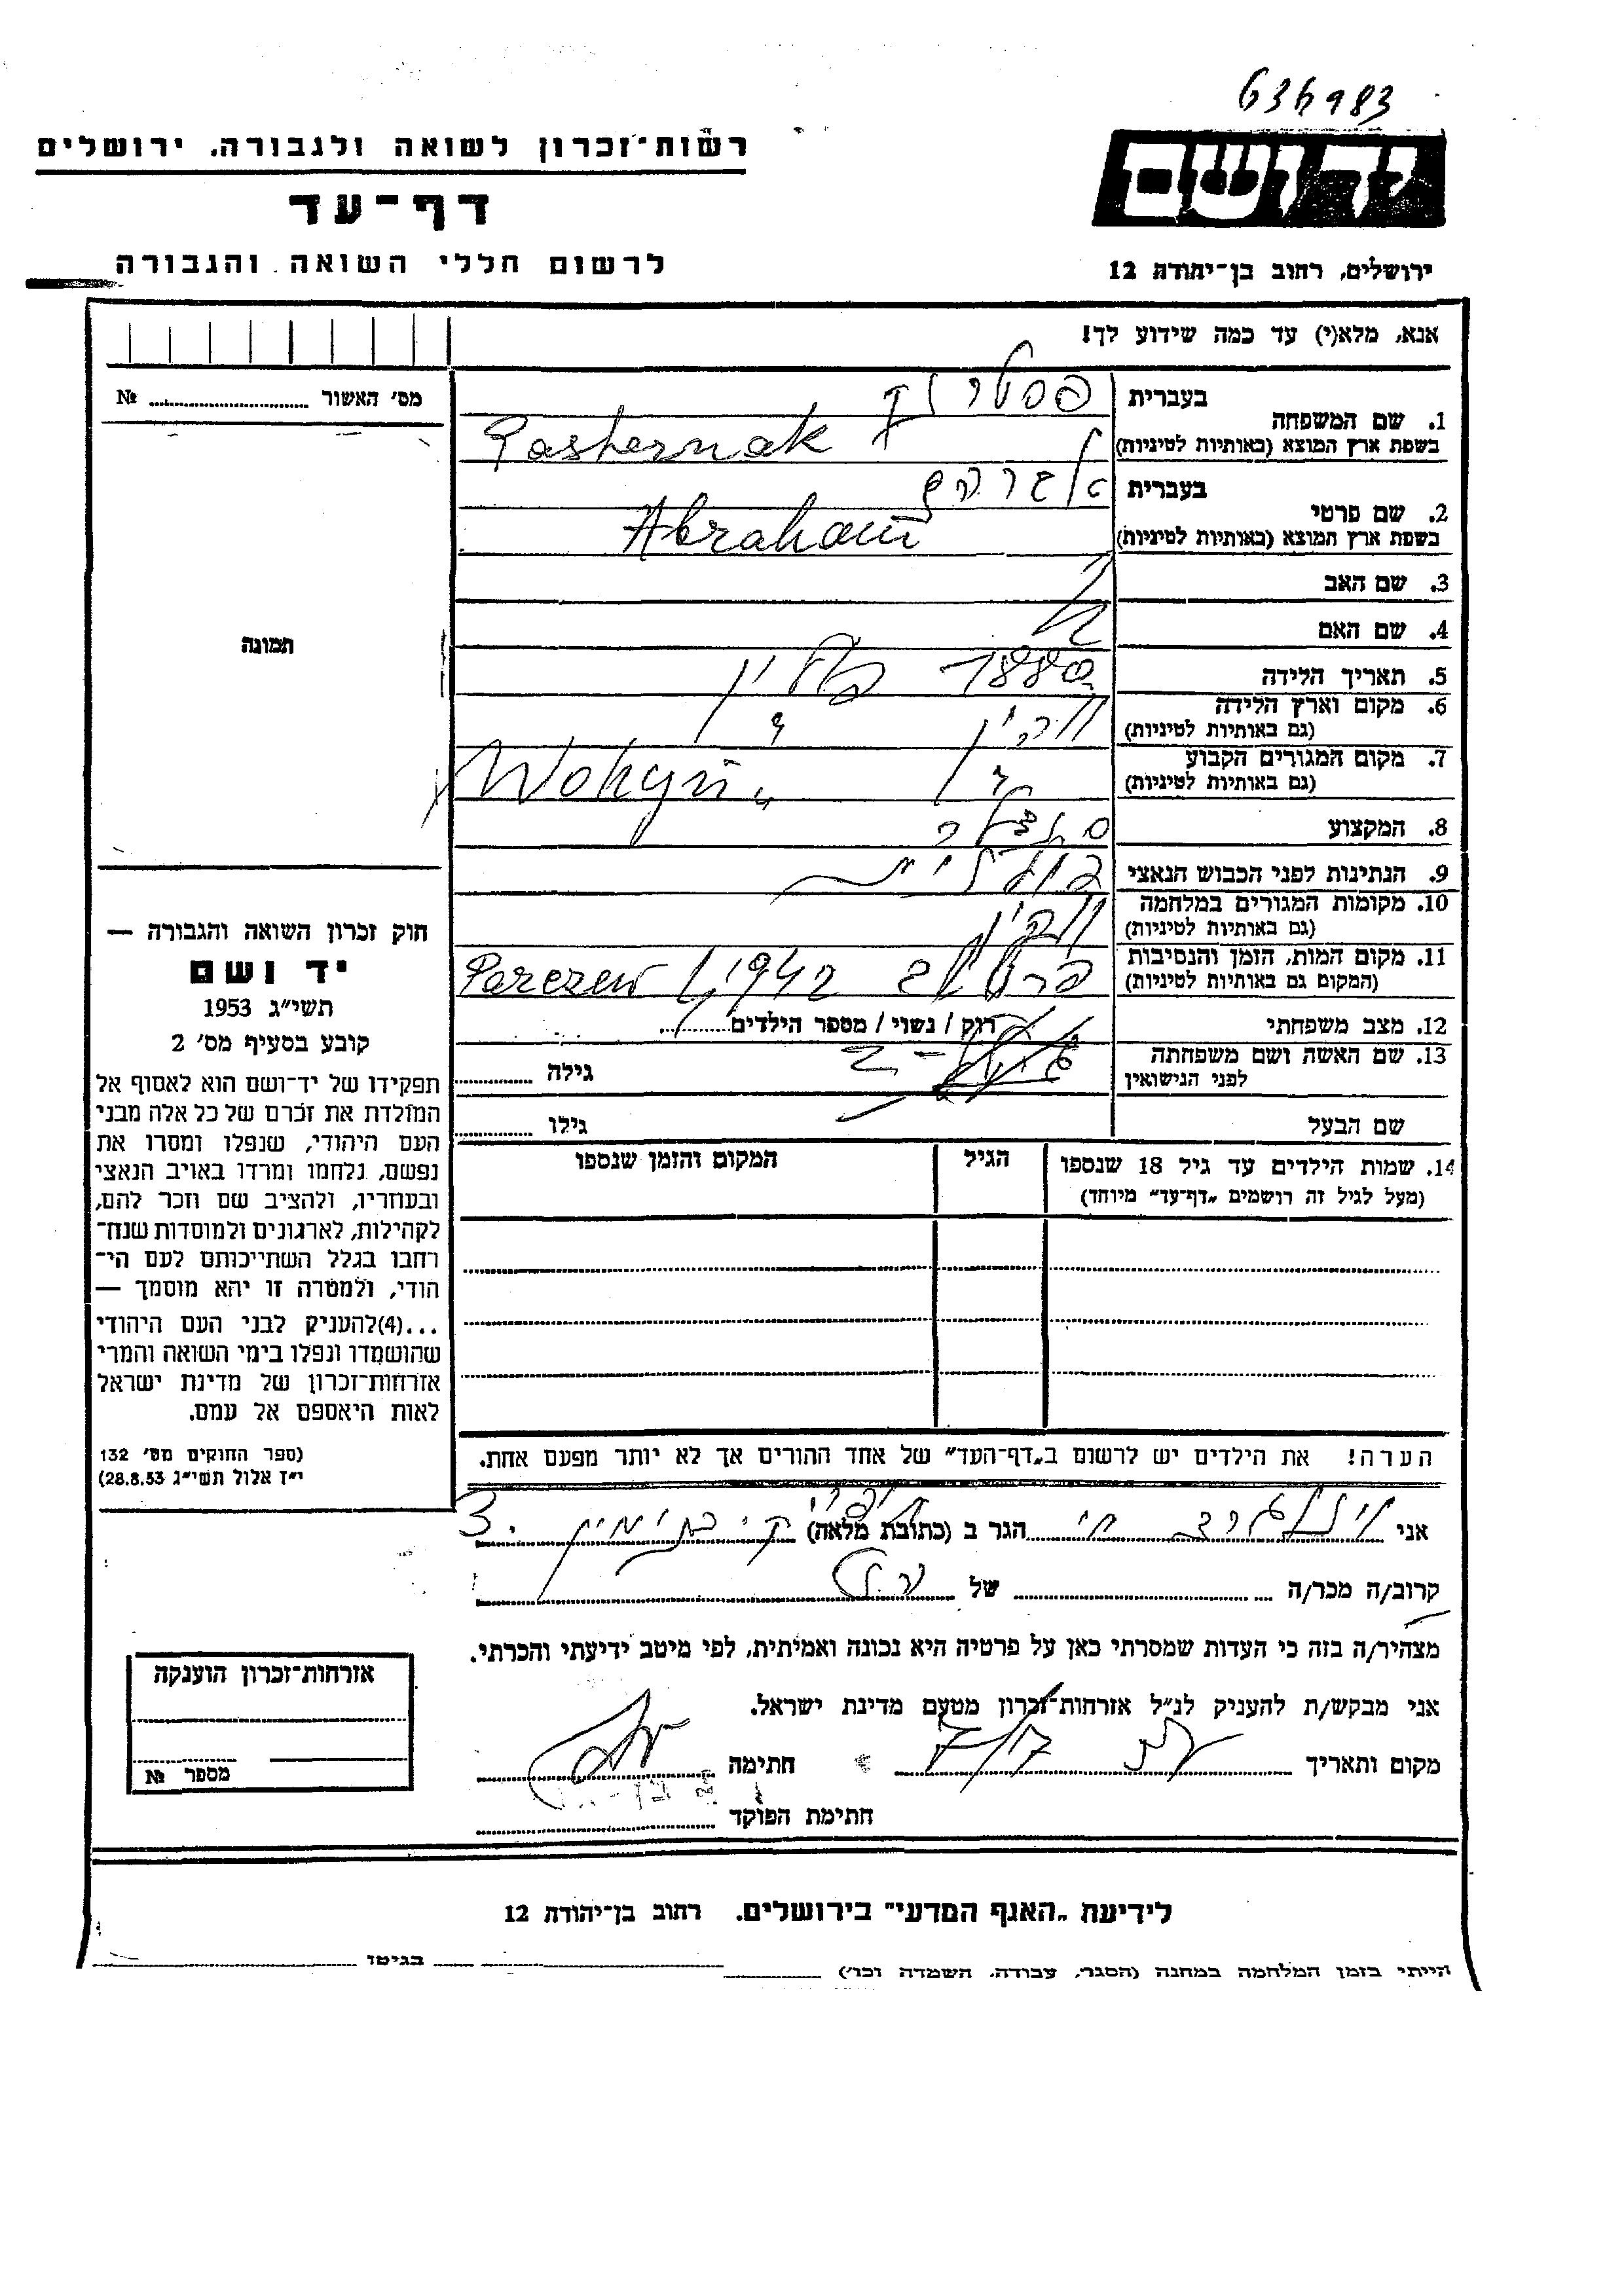 636983
יד ושם
ירושלים, רחוב בן־יהודה 12
רשות־זכרון לשואה ולגבורה. ירושלים
דף־עד
לרשום חללי השואה והגבורה
אנא, מלא(י) עד כמה שידוע לך!
מס׳ האשור № ..........
תמונה
1. שם המשפחה
בעברית פסטרנק
בשפת ארץ המוצא (באותיות לטיניות) Pasternak
2. שם פרטי
בעברית אברהם
בשפת ארץ המוצא (באותיות לטיניות) Abraham
3. שם האב
4. שם האם
5. תאריך הלידה 1880
6. מקום וארץ הלידה
(גם באותיות לטיניות) ווהין
7. מקום המגורים הקבוע
(גם באותיות לטיניות) Wohyń
8. המקצוע
9. הנתינות לפני הכבוש הנאצי
10. מקומות המגורים במלחמה
(גם באותיות לטיניות) ווהין
11. מקום המות, הזמן והנסיבות
(המקום גם באותיות לטיניות) 1942 Parczew
12. מצב משפחתי רווק / נשוי / מספר הילדים..........
13. שם האשה ושם משפחתה
לפני הנישואין
גילה ..........
שם הבעל גילו ..........
14. שמות הילדים עד גיל 18 שנספו
(מעל לגיל זה רושמים „דף־עד״ מיוחד)
הגיל
המקום והזמן שנספו
הערה! את הילדים יש לרשום ב„דף־העד״ של אחד ההורים אך לא יותר מפעם אחת.
חוק זכרון השואה והגבורה —
יד ושם
תשי״ג 1953
קובע בסעיף מס׳ 2
תפקידו של יד־ושם הוא לאסוף אל
המולדת את זכרם של כל אלה מבני
העם היהודי, שנפלו ומסרו את
נפשם, נלחמו ומרדו באויב הנאצי
ובעוזריו, ולהציב שם וזכר להם,
לקהילות, לארגונים ולמוסדות שנח־
רבו בגלל השתייכותם לעם הי־
הודי, ולמטרה זו יהא מוסמך —
...(4)להעניק לבני העם היהודי
שהושמדו ונפלו בימי השואה והמרי
אזרחות־זכרון של מדינת ישראל
לאות היאספם אל עמם.
(ספר החוקים מס׳ 132
י״ז אלול תשי״ג 28.8.53)
אני הגר ב (כתובת מלאה)
קרוב/ה מכר/ה של
מצהיר/ה בזה כי העדות שמסרתי כאן על פרטיה היא נכונה ואמיתית, לפי מיטב ידיעתי והכרתי.
אני מבקש/ת להעניק לנ״ל אזרחות־זכרון מטעם מדינת ישראל.
מקום ותאריך חתימה
חתימת הפוקד
אזרחות־זכרון הוענקה
מספר №
לידיעת „האגף המדעי״ בירושלים. רחוב בן־יהודה 12
הייתי בזמן המלחמה במחנה (הסגר, עבודה, השמדה וכו׳) בגיטו